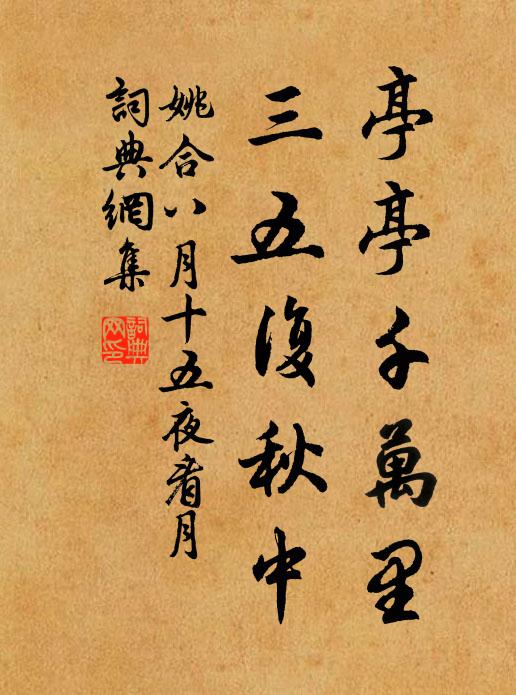 亭亭千萬里
三五復秋中
姚合八月十五夜看月
詞典網集
詞典
网印